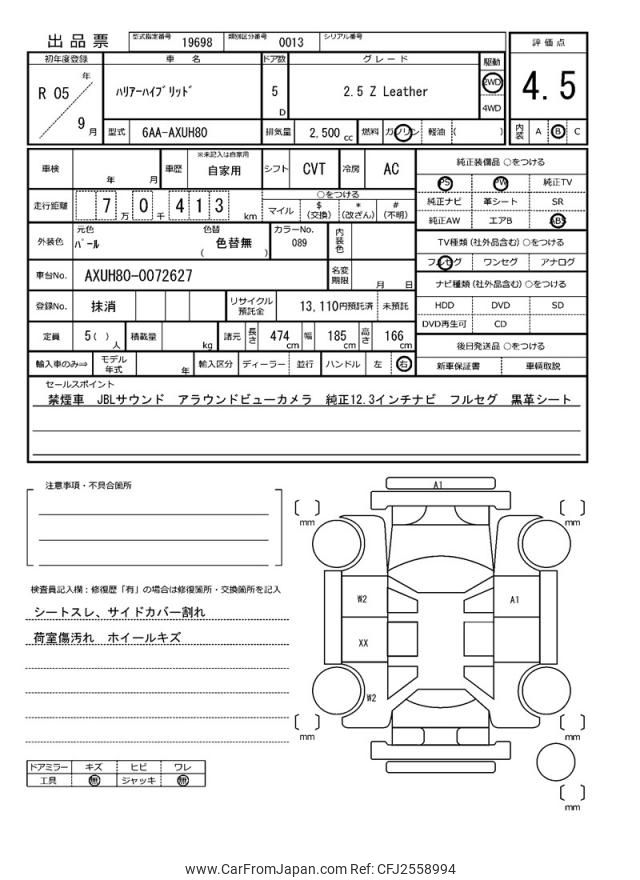 出品票 型式指定番号 19698 類別区分番号 0013 シリアル番号
評価点
4.5
内装 A B C
初年度登録 車名 ドア数 グレード 駆動
R 05 年 9 月
ハリアーハイブリッド 5 D 2.5 Z Leather 2WD 4WD
型式 6AA-AXUH80 排気量 2,500 cc 燃料 ガソリン 軽油 ( )
車検 年 月 車歴 ※未記入は自家用 自家用 シフト CVT 冷房 AC
走行距離 7 万 0 千 4 1 3 km ○をつける
マイル $ (交換) * (改ざん) # (不明)
外装色 元色 パール 色替 色替無 ( ) カラーNo. 089 内装色
車台No. AXUH80-0072627 名変期限 月 日
登録No. 抹消 リサイクル預託金 13,110円預託済 未預託
定員 5( ) 人 積載量 kg 諸元 長さ 474 cm 幅 185 cm 高さ 166 cm
輸入車のみ⇒ モデル年式 年 輸入区分 ディーラー 並行 ハンドル 左 右
純正装備品 ○をつける
PS PW 純正TV
純正ナビ 革シート SR
純正AW エアB ABS
TV種類 (社外品含む) ○をつける
フルセグ ワンセグ アナログ
ナビ種類 (社外品含む) ○をつける
HDD DVD SD
DVD再生可 CD
後日発送品 ○をつける
新車保証書 車輌取説
セールスポイント
禁煙車 JBLサウンド アラウンドビューカメラ 純正12.3インチナビ フルセグ 黒革シート
注意事項・不具合箇所
検査員記入欄：修復歴「有」の場合は修復箇所・交換箇所を記入
シートスレ、サイドカバー割れ
荷室傷汚れ ホイールキズ
ドアミラー キズ ヒビ ワレ
工具 無 ジャッキ 無
A1
[ ] mm
[ ] mm
W2
A1
XX
W2
[ ] mm
[ ] mm
[ ] mm
www.CarFromJapan.com Ref: CFJ2558994